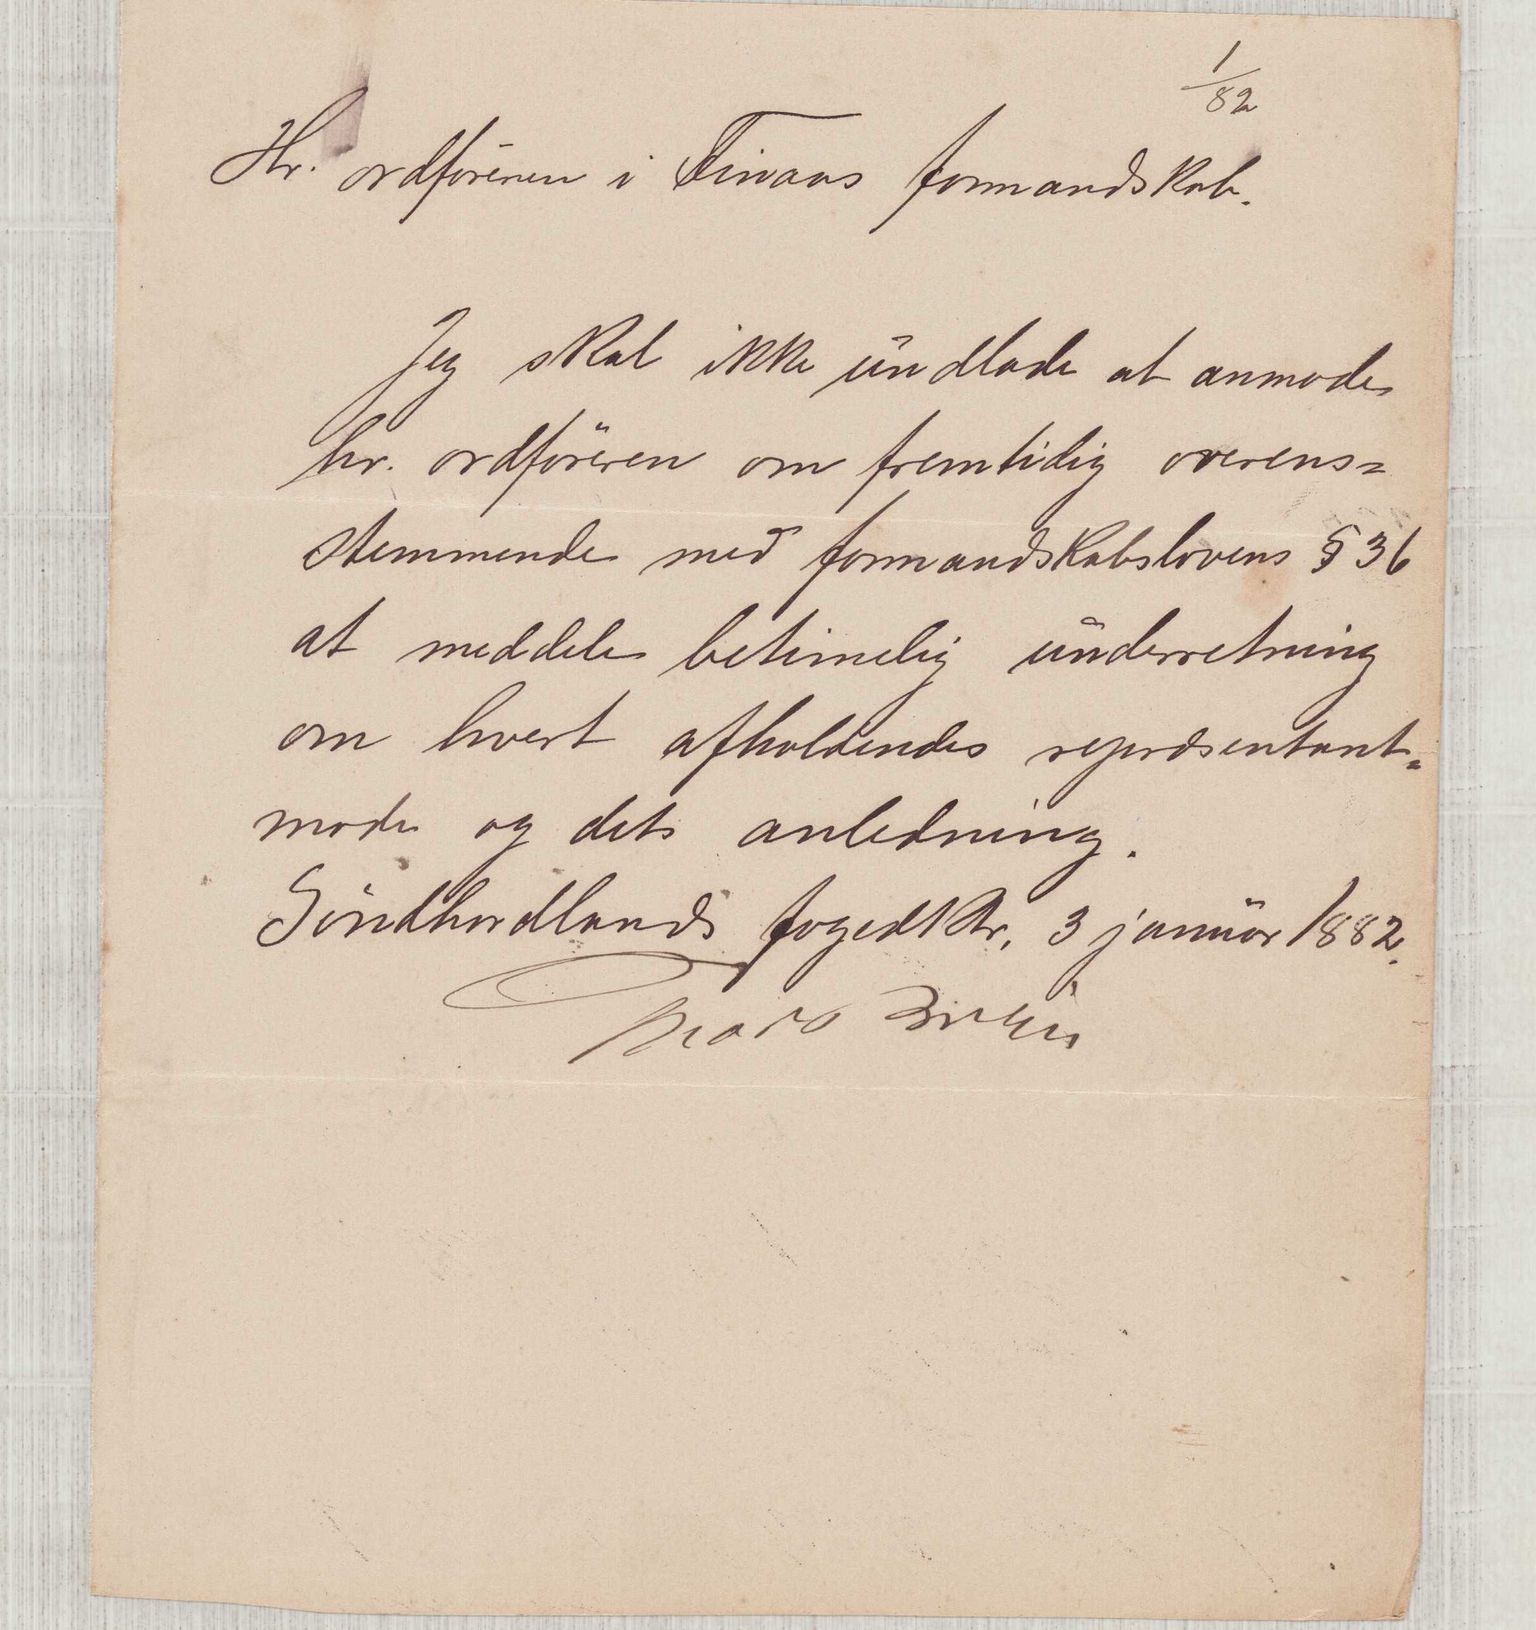 1/82
Hr. ordføreren i Finaas formandskab.
Jeg skal ikke undlade at anmode
hr. ordføreren om fremtidig overens=
stemmende med formandskabslovens § 36
at meddele betimelig underretning
om hvert afholdendes repræsentant=
møde og dets anledning.
Søndhordlands fogedktr, 3 januar 1882.